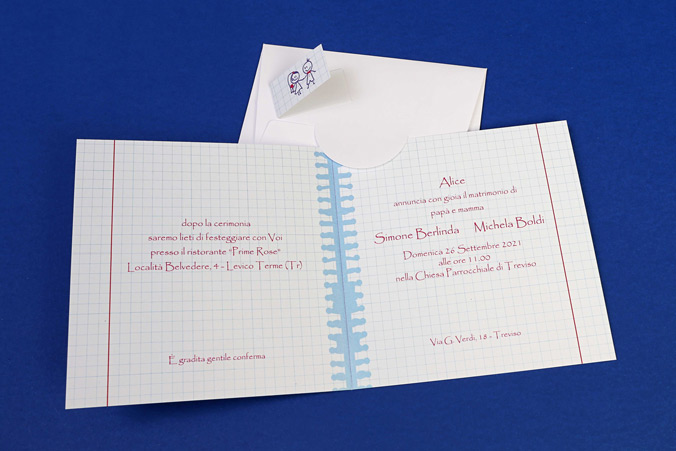 dopo la cerimonia
saremo lieti di festeggiare con Voi
presso il ristorante "Prime Rose"
Località Belvedere, 4 - Levico Terme (Tr)
È gradita gentile conferma
Alice
annuncia con gioia il matrimonio di
papà e mamma
Simone Berlinda Michela Boldi
Domenica 26 Settembre 2021
alle ore 11.00
nella Chiesa Parrocchiale di Treviso
Via G. Verdi, 18 - Treviso